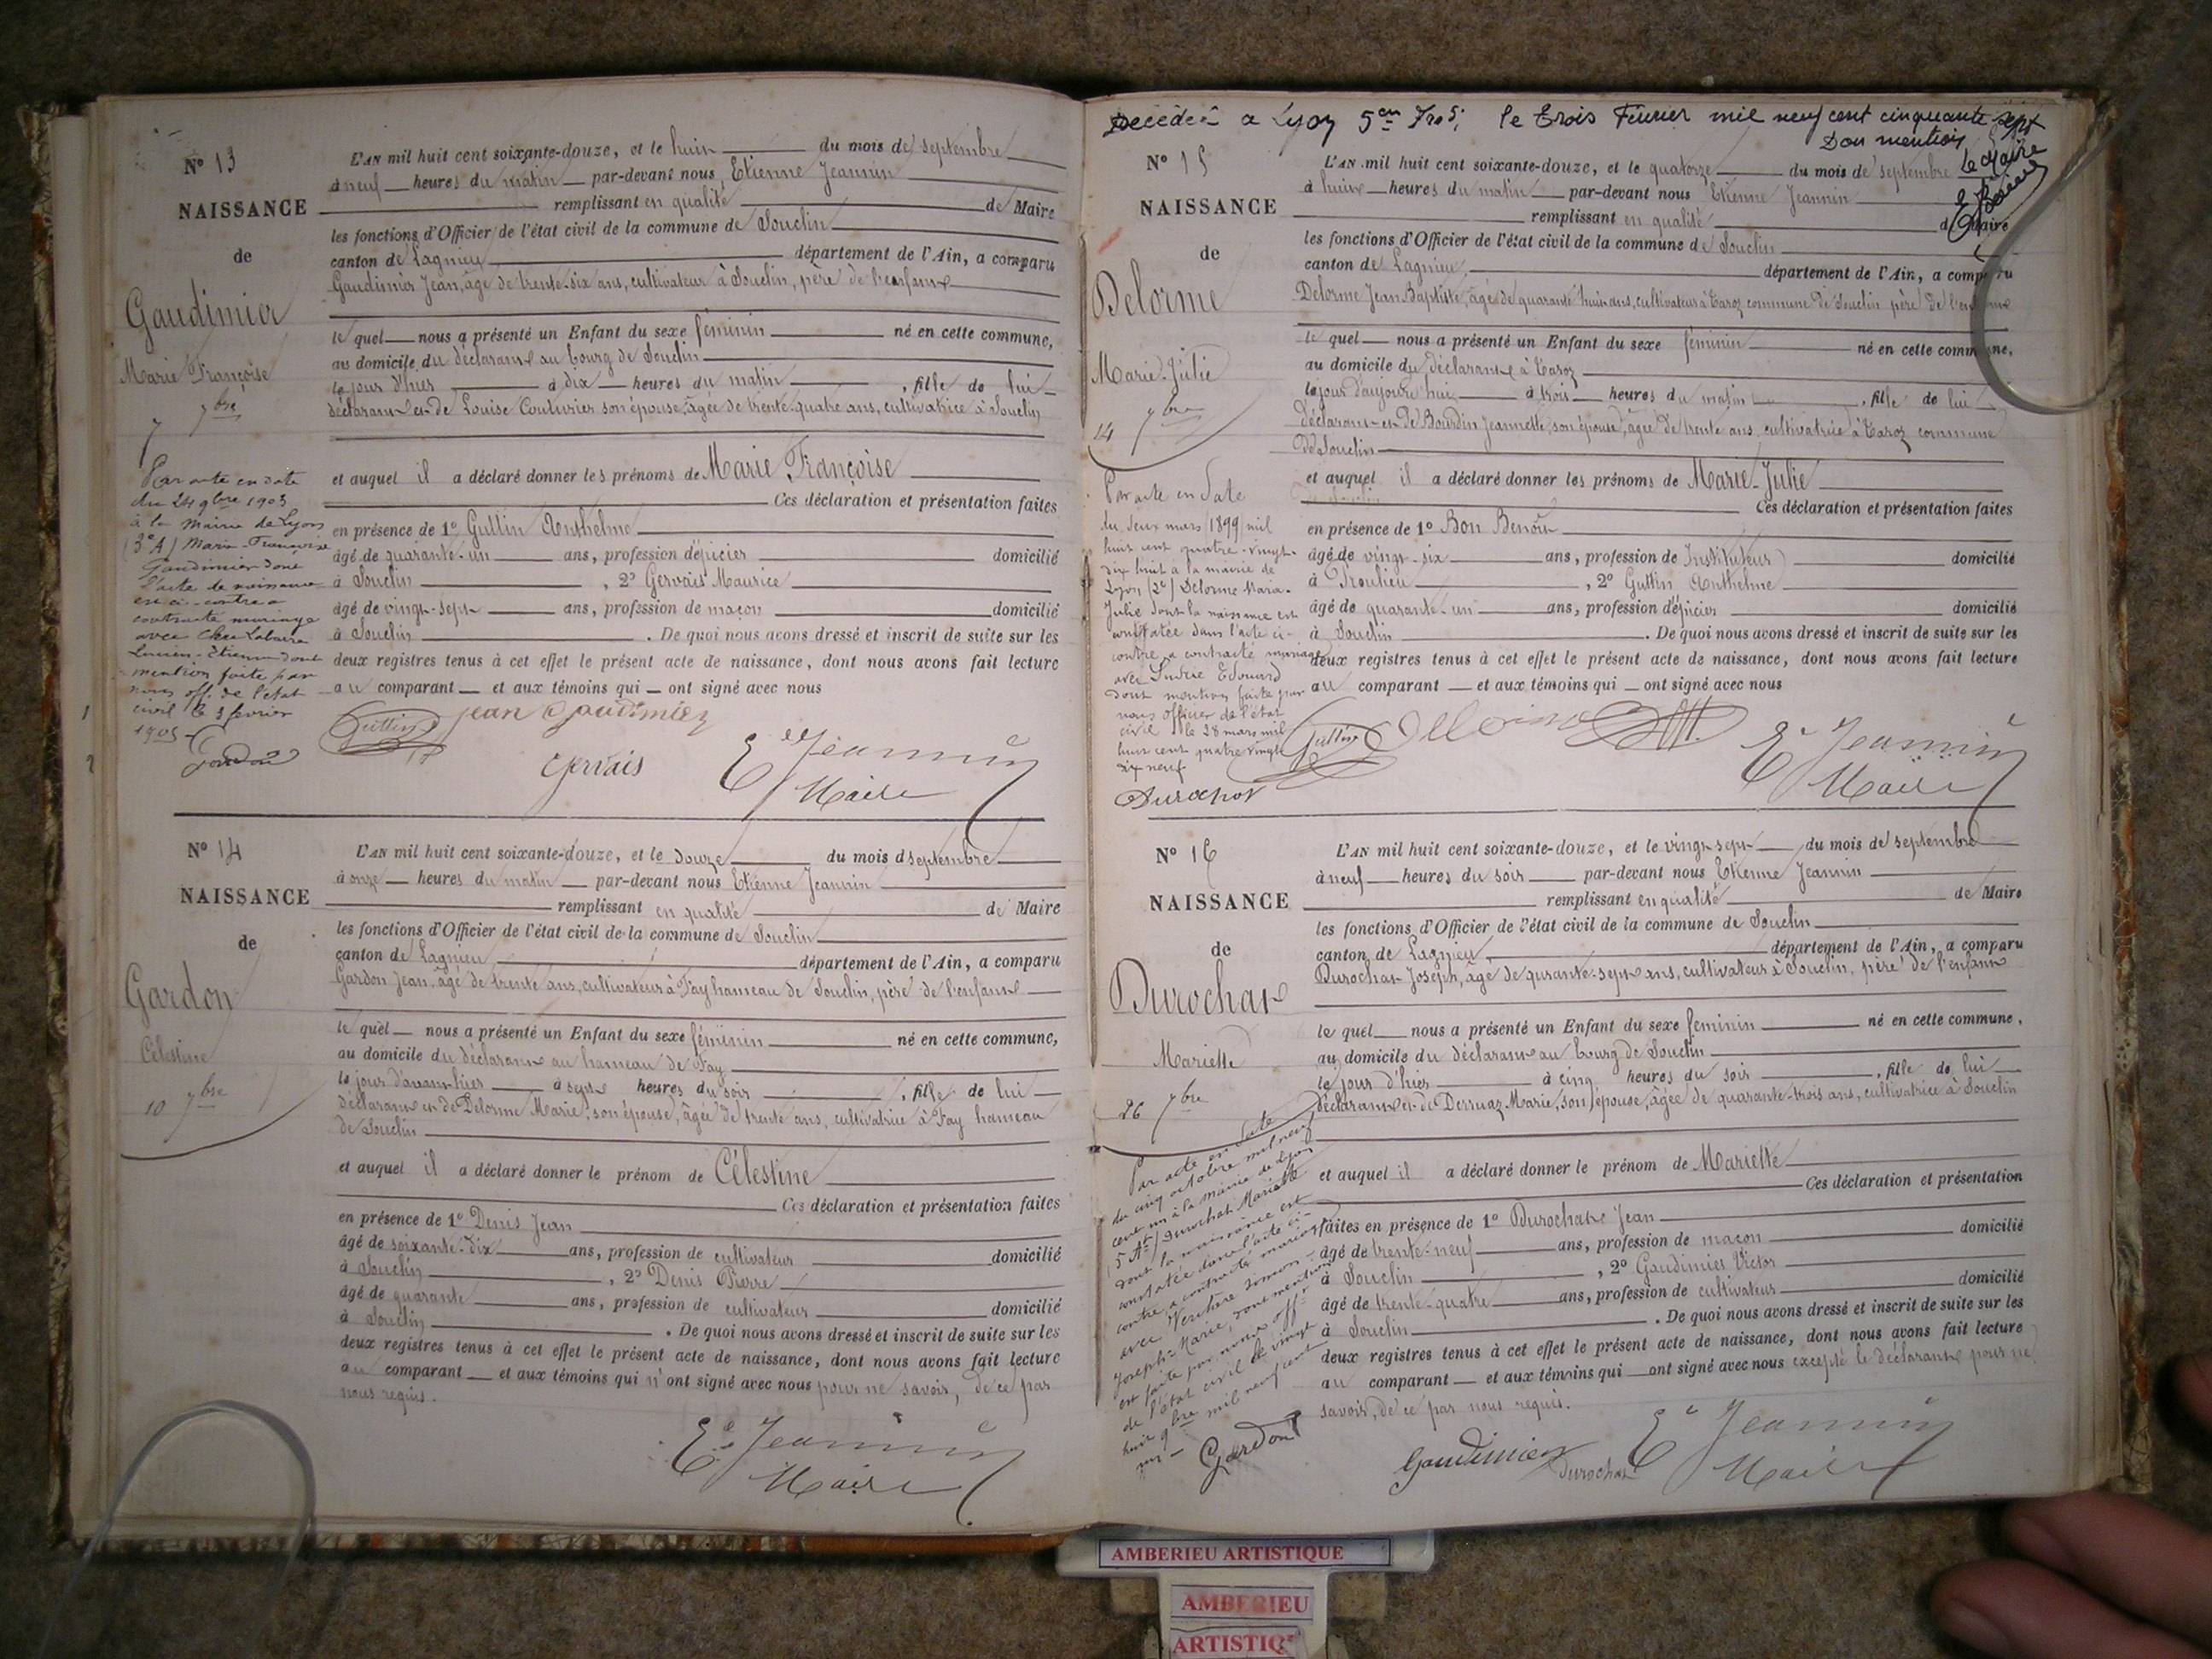 N° 13
NAISSANCE
de
Gaudimier
Marie Françoise
7 7bre
Par acte en date
du 24 9bre 1903
à la Mairie de Lyon
(3e A) Marie-Françoise
Gaudimier dont
l'acte de naissance
est ci-contre a
contracté mariage
avec
Lucien-Etienne dont
mention faite par
nous off. de l'état
civil le 3 février
1905
L'AN mil huit cent soixante-douze, et le huit du mois de septembre
à neuf heures du matin par-devant nous Etienne Jeannin
remplissant en qualité de Maire
les fonctions d'Officier de l'état civil de la commune de Souclin
canton de Lagnieu département de l'Ain, a comparu
Gaudimier Jean, âgé de trente-six ans, cultivateur à Souclin, père de l'enfant
le quel nous a présenté un Enfant du sexe féminin né en cette commune,
au domicile du déclarant au bourg de Souclin
le jour d'hier à dix heures du matin, fille de lui
déclarant et de Louise Couturier son épouse, âgée de trente-quatre ans, cultivatrice à Souclin
et auquel il a déclaré donner les prénoms de Marie Françoise
Ces déclaration et présentation faites
en présence de 1° Guttin Anthelme
âgé de quarante-un ans, profession d'épicier domicilié
à Souclin, 2° Gervais Maurice
âgé de vingt-sept ans, profession de maçon domicilié
à Souclin. De quoi nous avons dressé et inscrit de suite sur les
deux registres tenus à cet effet le présent acte de naissance, dont nous avons fait lecture
au comparant et aux témoins qui ont signé avec nous
Guttin jean Gaudimier
Gervais Ee Jeannin
Maire
N° 14
NAISSANCE
de
Gardon
Célestine
10 7bre
L'AN mil huit cent soixante-douze, et le douze du mois d septembre
à onze heures du matin par-devant nous Etienne Jeannin
remplissant en qualité de Maire
les fonctions d'Officier de l'état civil de la commune de Souclin
canton de Lagnieu département de l'Ain, a comparu
Gardon Jean, âgé de trente ans, cultivateur à Fay hameau de Souclin, père de l'enfant
le quel nous a présenté un Enfant du sexe féminin né en cette commune,
au domicile du déclarant au hameau de Fay
le jour d'avant-hier à sept heures du soir, fille de lui
déclarant et de Delorme Marie, son épouse, âgée de trente ans, cultivatrice à Fay hameau
de Souclin
et auquel il a déclaré donner le prénom de Célestine
Ces déclaration et présentation faites
en présence de 1° Denis Jean
âgé de soixante-dix ans, profession de cultivateur domicilié
à Souclin, 2° Denis Pierre
âgé de quarante ans, profession de cultivateur domicilié
à Souclin. De quoi nous avons dressé et inscrit de suite sur les
deux registres tenus à cet effet le présent acte de naissance, dont nous avons fait lecture
au comparant et aux témoins qui n'ont signé avec nous pour ne savoir, de ce par
nous requis.
Ee Jeannin
Maire
Décédée a Lyon 5em le trois Février mil neuf cent cinquante sept
Dont mention
Le Maire
N° 15
NAISSANCE
de
Delorme
Marie-Julie
14 7bre
Par acte en date
du deux mars (1899) mil
huit cent quatre-vingt-
dix huit à la mairie de
Lyon (2e) Delorme Marie-
Julie dont la naissance est
constatée dans l'acte ci-
contre a contracté mariage
avec Edouard
dont mention faite par
nous officier de l'état
civil le 28 mars mil
huit cent quatre vingt
dix neuf
Durochat
L'AN mil huit cent soixante-douze, et le quatorze du mois de septembre
à huit heures du matin par-devant nous Etienne Jeannin
remplissant en qualité de Maire
les fonctions d'Officier de l'état civil de la commune de Souclin
canton de Lagnieu, département de l'Ain, a comparu
Delorme Jean-Baptiste, âgé de quarante huit ans, cultivateur à Taroz commune de Souclin père de l'enfant
le quel nous a présenté un Enfant du sexe féminin né en cette commune,
au domicile du déclarant à Taroz
le jour d'aujourd'hui à trois heures du matin, fille de lui
déclarant et de Bourdin Jeannette, son épouse, âgée de trente ans, cultivatrice à Taroz commune
de Souclin
et auquel il a déclaré donner les prénoms de Marie-Julie
Ces déclaration et présentation faites
en présence de 1° Bon Benoît
âgé de vingt-six ans, profession de Instituteur domicilié
à Proulieu, 2° Guttin Anthelme
âgé de quarante-un ans, profession d'épicier domicilié
à Souclin. De quoi nous avons dressé et inscrit de suite sur les
deux registres tenus à cet effet le présent acte de naissance, dont nous avons fait lecture
au comparant et aux témoins qui ont signé avec nous
Guttin Delorme Ee Jeannin
Maire
N° 16
NAISSANCE
de
Durochat
Mariette
26 7bre
Par acte en date
du cinq octobre mil neuf
cent un à la mairie de Lyon
(5e At) Durochat Mariette
dont la naissance est
constatée dans l'acte ci-
contre, a contracté mariage
avec Verchère
Joseph-Marie, dont mention
est faite par nous off.r
de l'état civil le vingt
huit 9bre mil neuf cent
un
Gardon
L'AN mil huit cent soixante-douze, et le vingt-sept du mois de septembre
à neuf heures du soir par-devant nous Etienne Jeannin
remplissant en qualité de Maire
les fonctions d'Officier de l'état civil de la commune de Souclin
canton de Lagnieu, département de l'Ain, a comparu
Durochat Joseph, âgé de qurante-sept ans, cultivateur à Souclin, père de l'enfant
le quel nous a présenté un Enfant du sexe féminin né en cette commune,
au domicile du déclarant au bourg de Souclin
le jour d'hier à cinq heures du soir, fille de lui
déclarant et de Derruaz Marie, son épouse, âgée de quarante-trois ans, cultivatrice à Souclin
et auquel il a déclaré donner le prénom de Mariette
Ces déclaration et présentation
faites en présence de 1° Durochat Jean domicilié
âgé de trente-neuf ans, profession de maçon
à Souclin, 2° Gaudimier Victor
âgé de trente-quatre ans, profession de cultivateur domicilié
à Souclin. De quoi nous avons dressé et inscrit de suite sur les
deux registres tenus à cet effet le présent acte de naissance, dont nous avons fait lecture
au comparant et aux témoins qui ont signé avec nous excepté le déclarant pour ne
savoir, de ce par nous requis.
Gaudimier Durochat Ee Jeannin
Maire
AMBERIEU ARTISTIQUE
AMBERIEU
ARTISTIQ